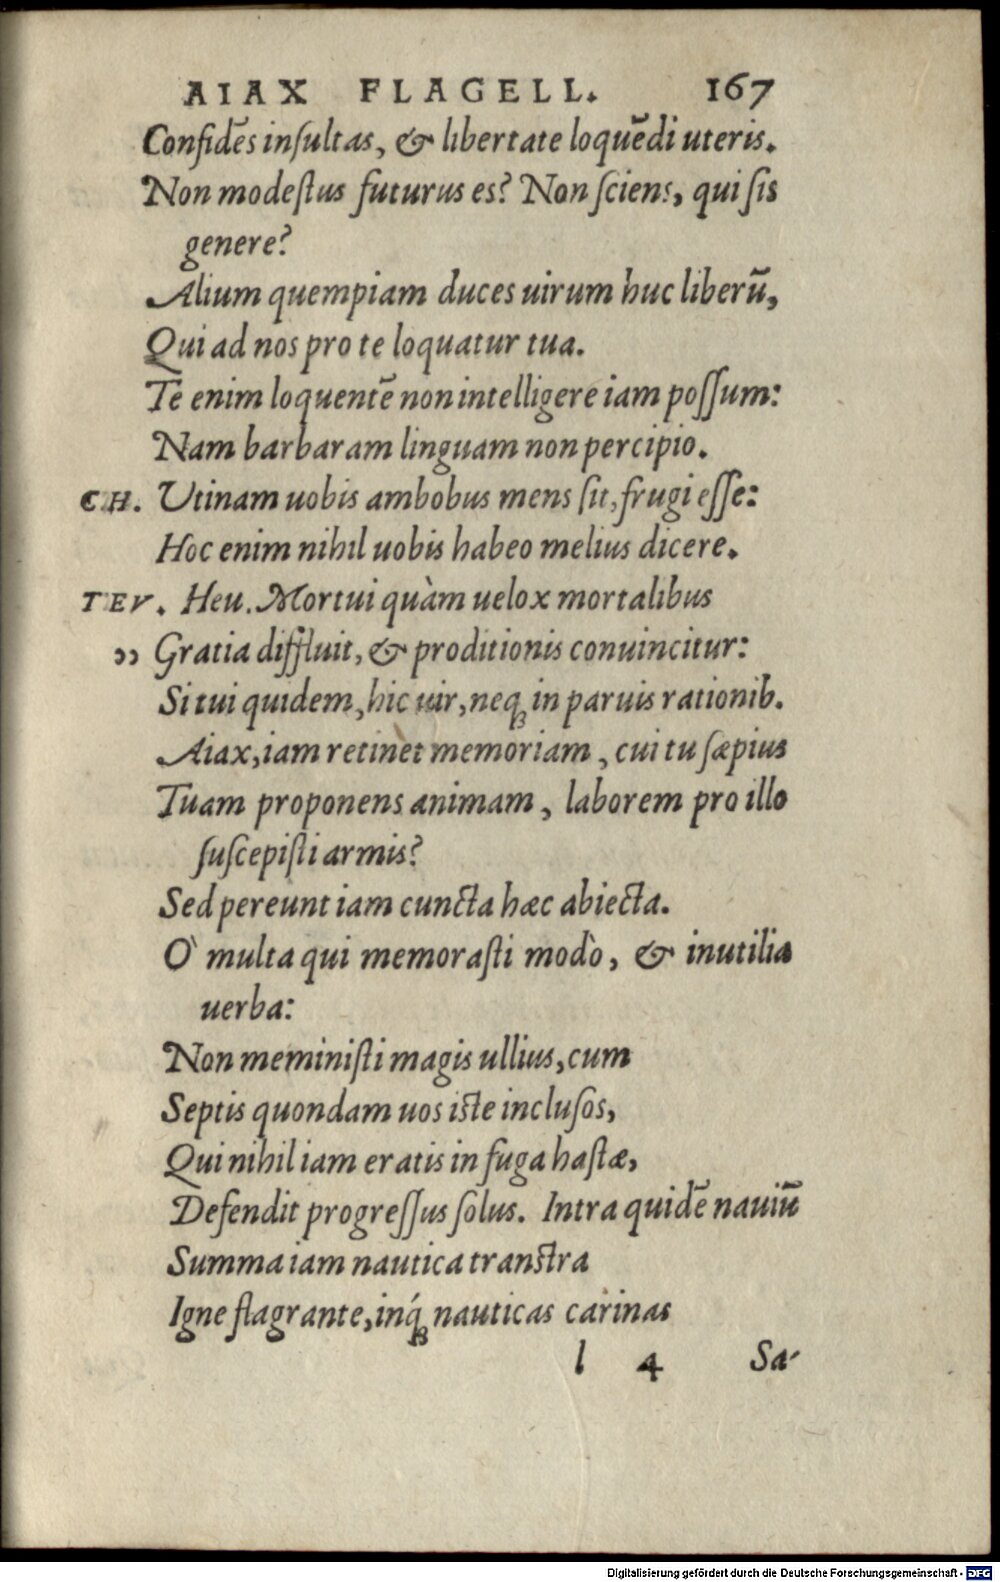 AIAX FLAGELL. 167
Confidẽs insultas, & libertate loquẽdi uteris.
Non modestus futurus es? Non sciens, qui sis
genere?
Alium quempiam duces uirum huc liberũ,
Qui ad nos pro te loquatur tua.
Te enim loquentẽ non intelligere iam possum:
Nam barbaram linguam non percipio.
CH. Utinam uobis ambobus mens sit, frugi esse:
Hoc enim nihil uobis habeo melius dicere.
TEV. Heu. Mortui quàm uelox mortalibus
" Gratia diffluit, & proditionis conuincitur:
Si tui quidem, hic uir, neqꝫ in paruis rationib.
Aiax, iam retinet memoriam, cui tu sæpius
Tuam proponens animam, laborem pro illo
suscepisti armis?
Sed pereunt iam cuncta hæc abiecta.
Ò multa qui memorasti modò, & inutilia
uerba:
Non meministi magis ullius, cum
Septis quondam uos iste inclusos,
Qui nihil iam eratis in fuga hastæ,
Defendit progressus solus. Intra quidẽ nauiũ
Summa iam nautica transtra
Igne flagrante, inq́ꝫ nauticas carinas
l 4 Sa-
Digitalisierung gefördert durch die Deutsche Forschungsgemeinschaft - DFG